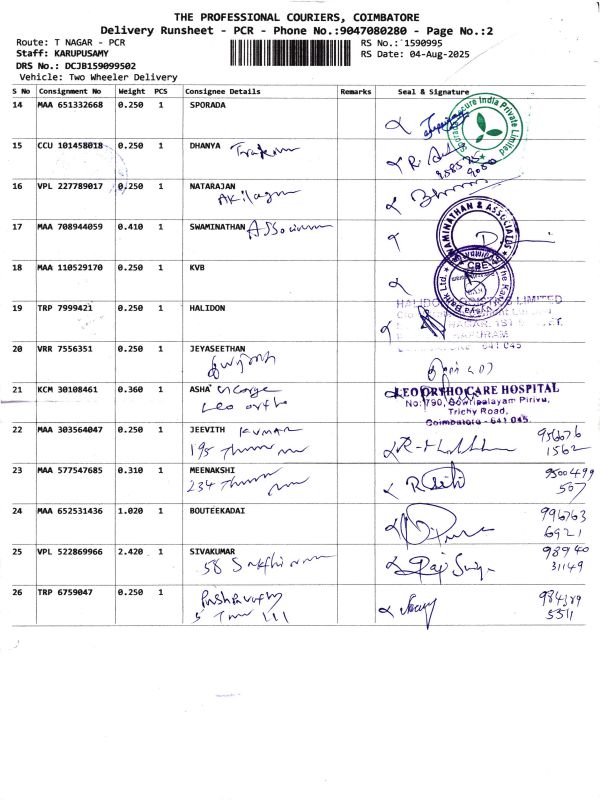 THE PROFESSIONAL COURIERS, COIMBATORE
Delivery Runsheet - PCR - Phone No.:9047080280 - Page No.:2
Route: T NAGAR - PCR
RS No.: 1590995
Staff: KARUPUSAMY
RS Date: 04-Aug-2025
DRS No.: DCJB159099502
Vehicle: Two Wheeler Delivery
S No Consignment No Weight PCS Consignee Details Remarks Seal & Signature
14 MAA 651332668 0.250 1 SPORADA
Sporada Secure India Private Limited
15 CCU 101458018 0.250 1 DHANYA
98585
9080
16 VPL 227789017 0.250 1 NATARAJAN
Akilagam
17 MAA 708944059 0.410 1 SWAMINATHAN Associates
SWAMINATHAN & ASSOCIATES
CBE-45
18 MAA 110529170 0.250 1 KVB
The Karur Vysya Bank Ltd.
19 TRP 7999421 0.250 1 HALIDON
HALIDON LIMITED
20 VRR 7556351 0.250 1 JEYASEETHAN
641 045
21 KCM 30108461 0.360 1 ASHA George
Leo ortho
LEO ORTHO CARE HOSPITAL
No: 790, Gowripalayam Pirivu,
Trichy Road,
Coimbatore - 641 045.
22 MAA 303564047 0.250 1 JEEVITH KUMAR
195
956676
1562
23 MAA 577547685 0.310 1 MEENAKSHI
234
9500499
507
24 MAA 652531436 1.020 1 BOUTEEKADAI
996763
6921
25 VPL 522869966 2.420 1 SIVAKUMAR
58
98940
31149
26 TRP 6759047 0.250 1
Pushpavathy
5
984389
5511